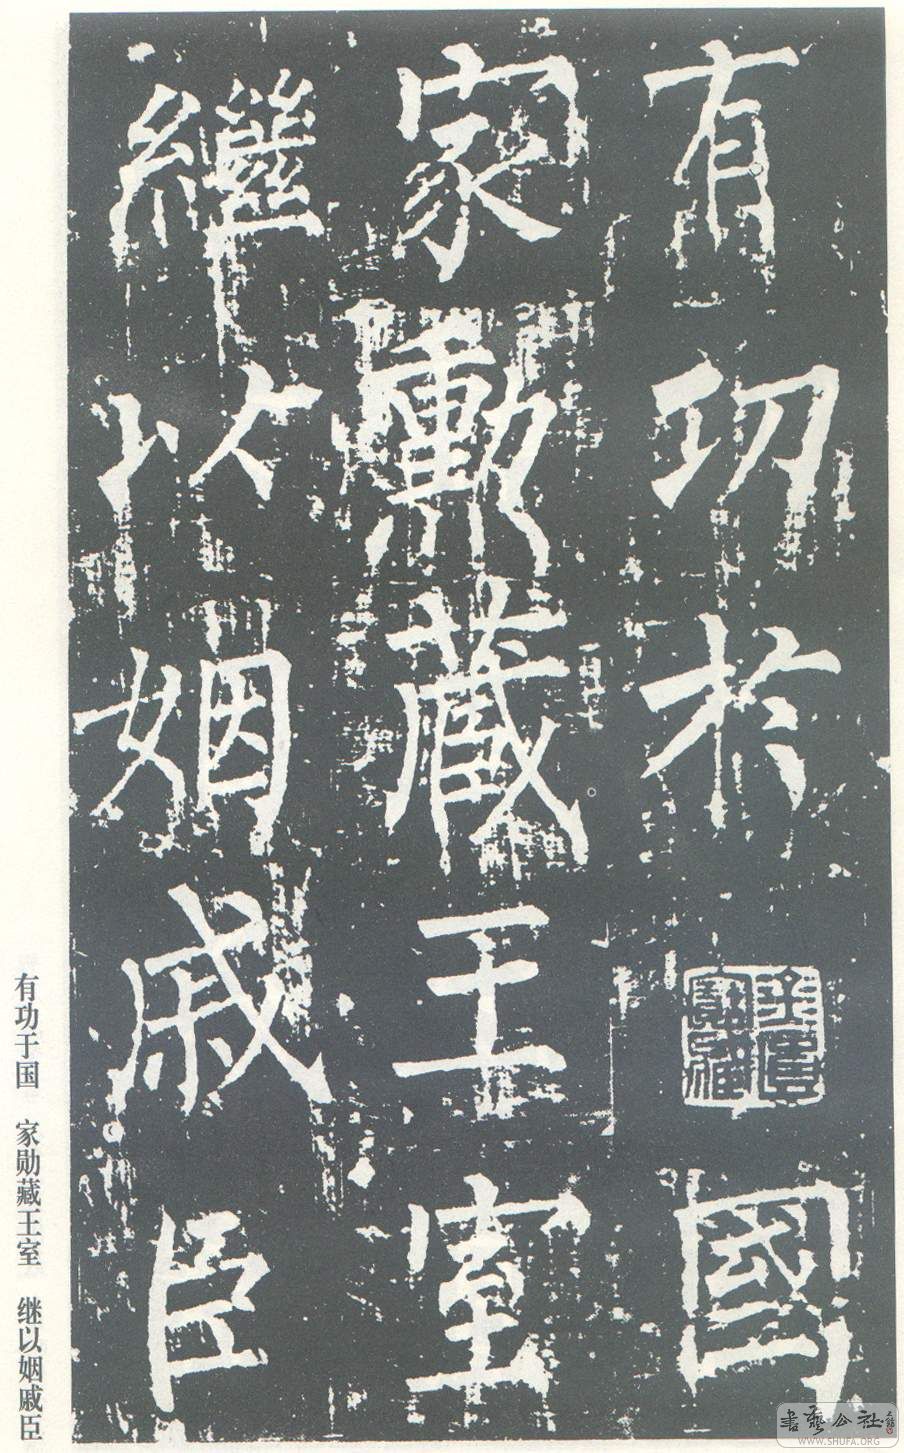 有功於國
家勳藏王室
繼以姻戚臣
有功于国 家勋藏王室 继以姻戚臣
書藝公社
WWW.SHUFA.ORG